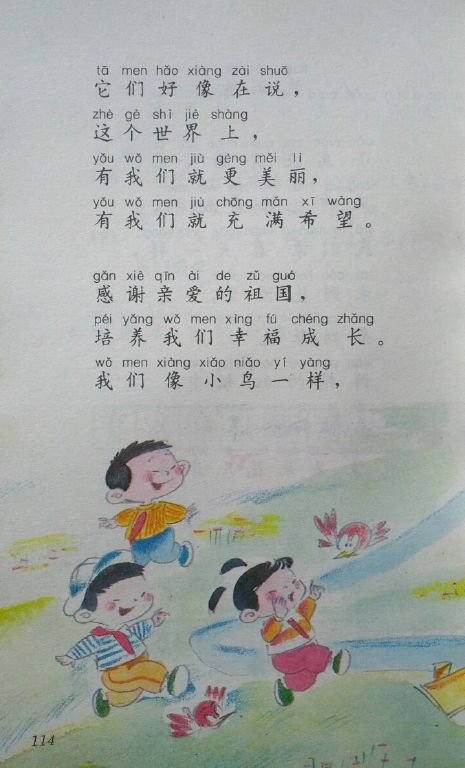 tā men hǎo xiàng zài shuō
它们好像在说，
zhè gè shì jiè shàng
这个世界上，
yǒu wǒ men jiù gèng měi lì
有我们就更美丽，
yǒu wǒ men jiù chōng mǎn xī wàng
有我们就充满希望。
gǎn xiè qīn ài de zǔ guó
感谢亲爱的祖国，
péi yǎng wǒ men xìng fú chéng zhǎng
培养我们幸福成长。
wǒ men xiàng xiǎo niǎo yí yàng
我们像小鸟一样，
114